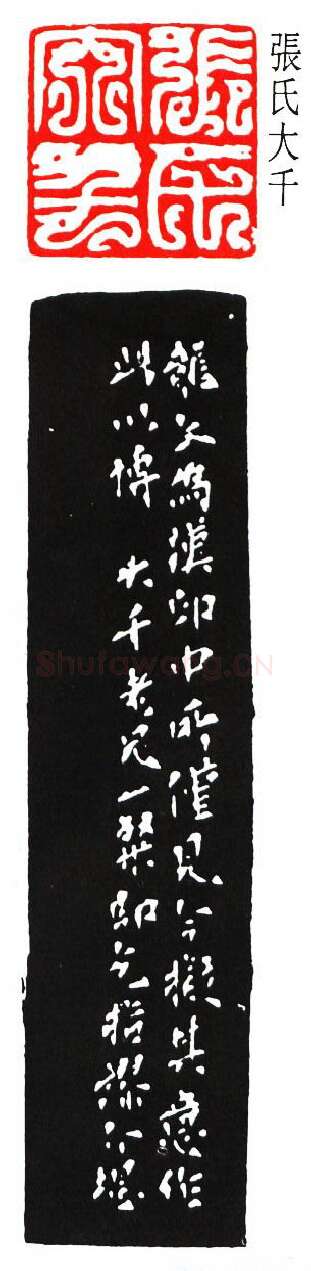 張氏大千
張氏
大千
文為漢印中所僅見今擬其意作
此以博 大千老兄一粲即乞指謬介堪
Shufawang.CN